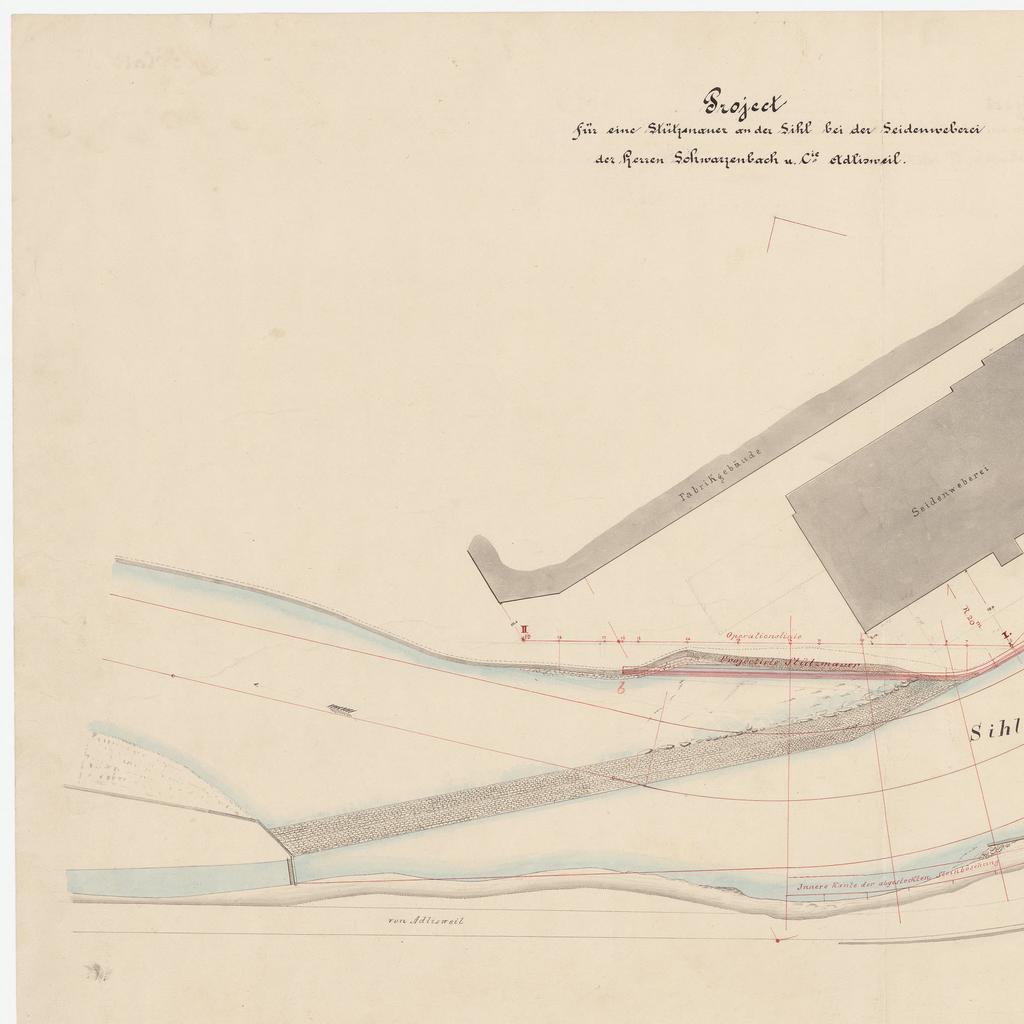 Project
für eine Stützmauer an der Sihl bei der Seidenweberei
der Herren Schwarzenbach u. Cie Adlisweil.
Fabrikgebäude
Seidenweberei
R. 20
II
Operationslinie
I.
Projectirte Stützmauer
b
Sihl
Innere Kante der abgesteckten Steinböschung
von Adlisweil